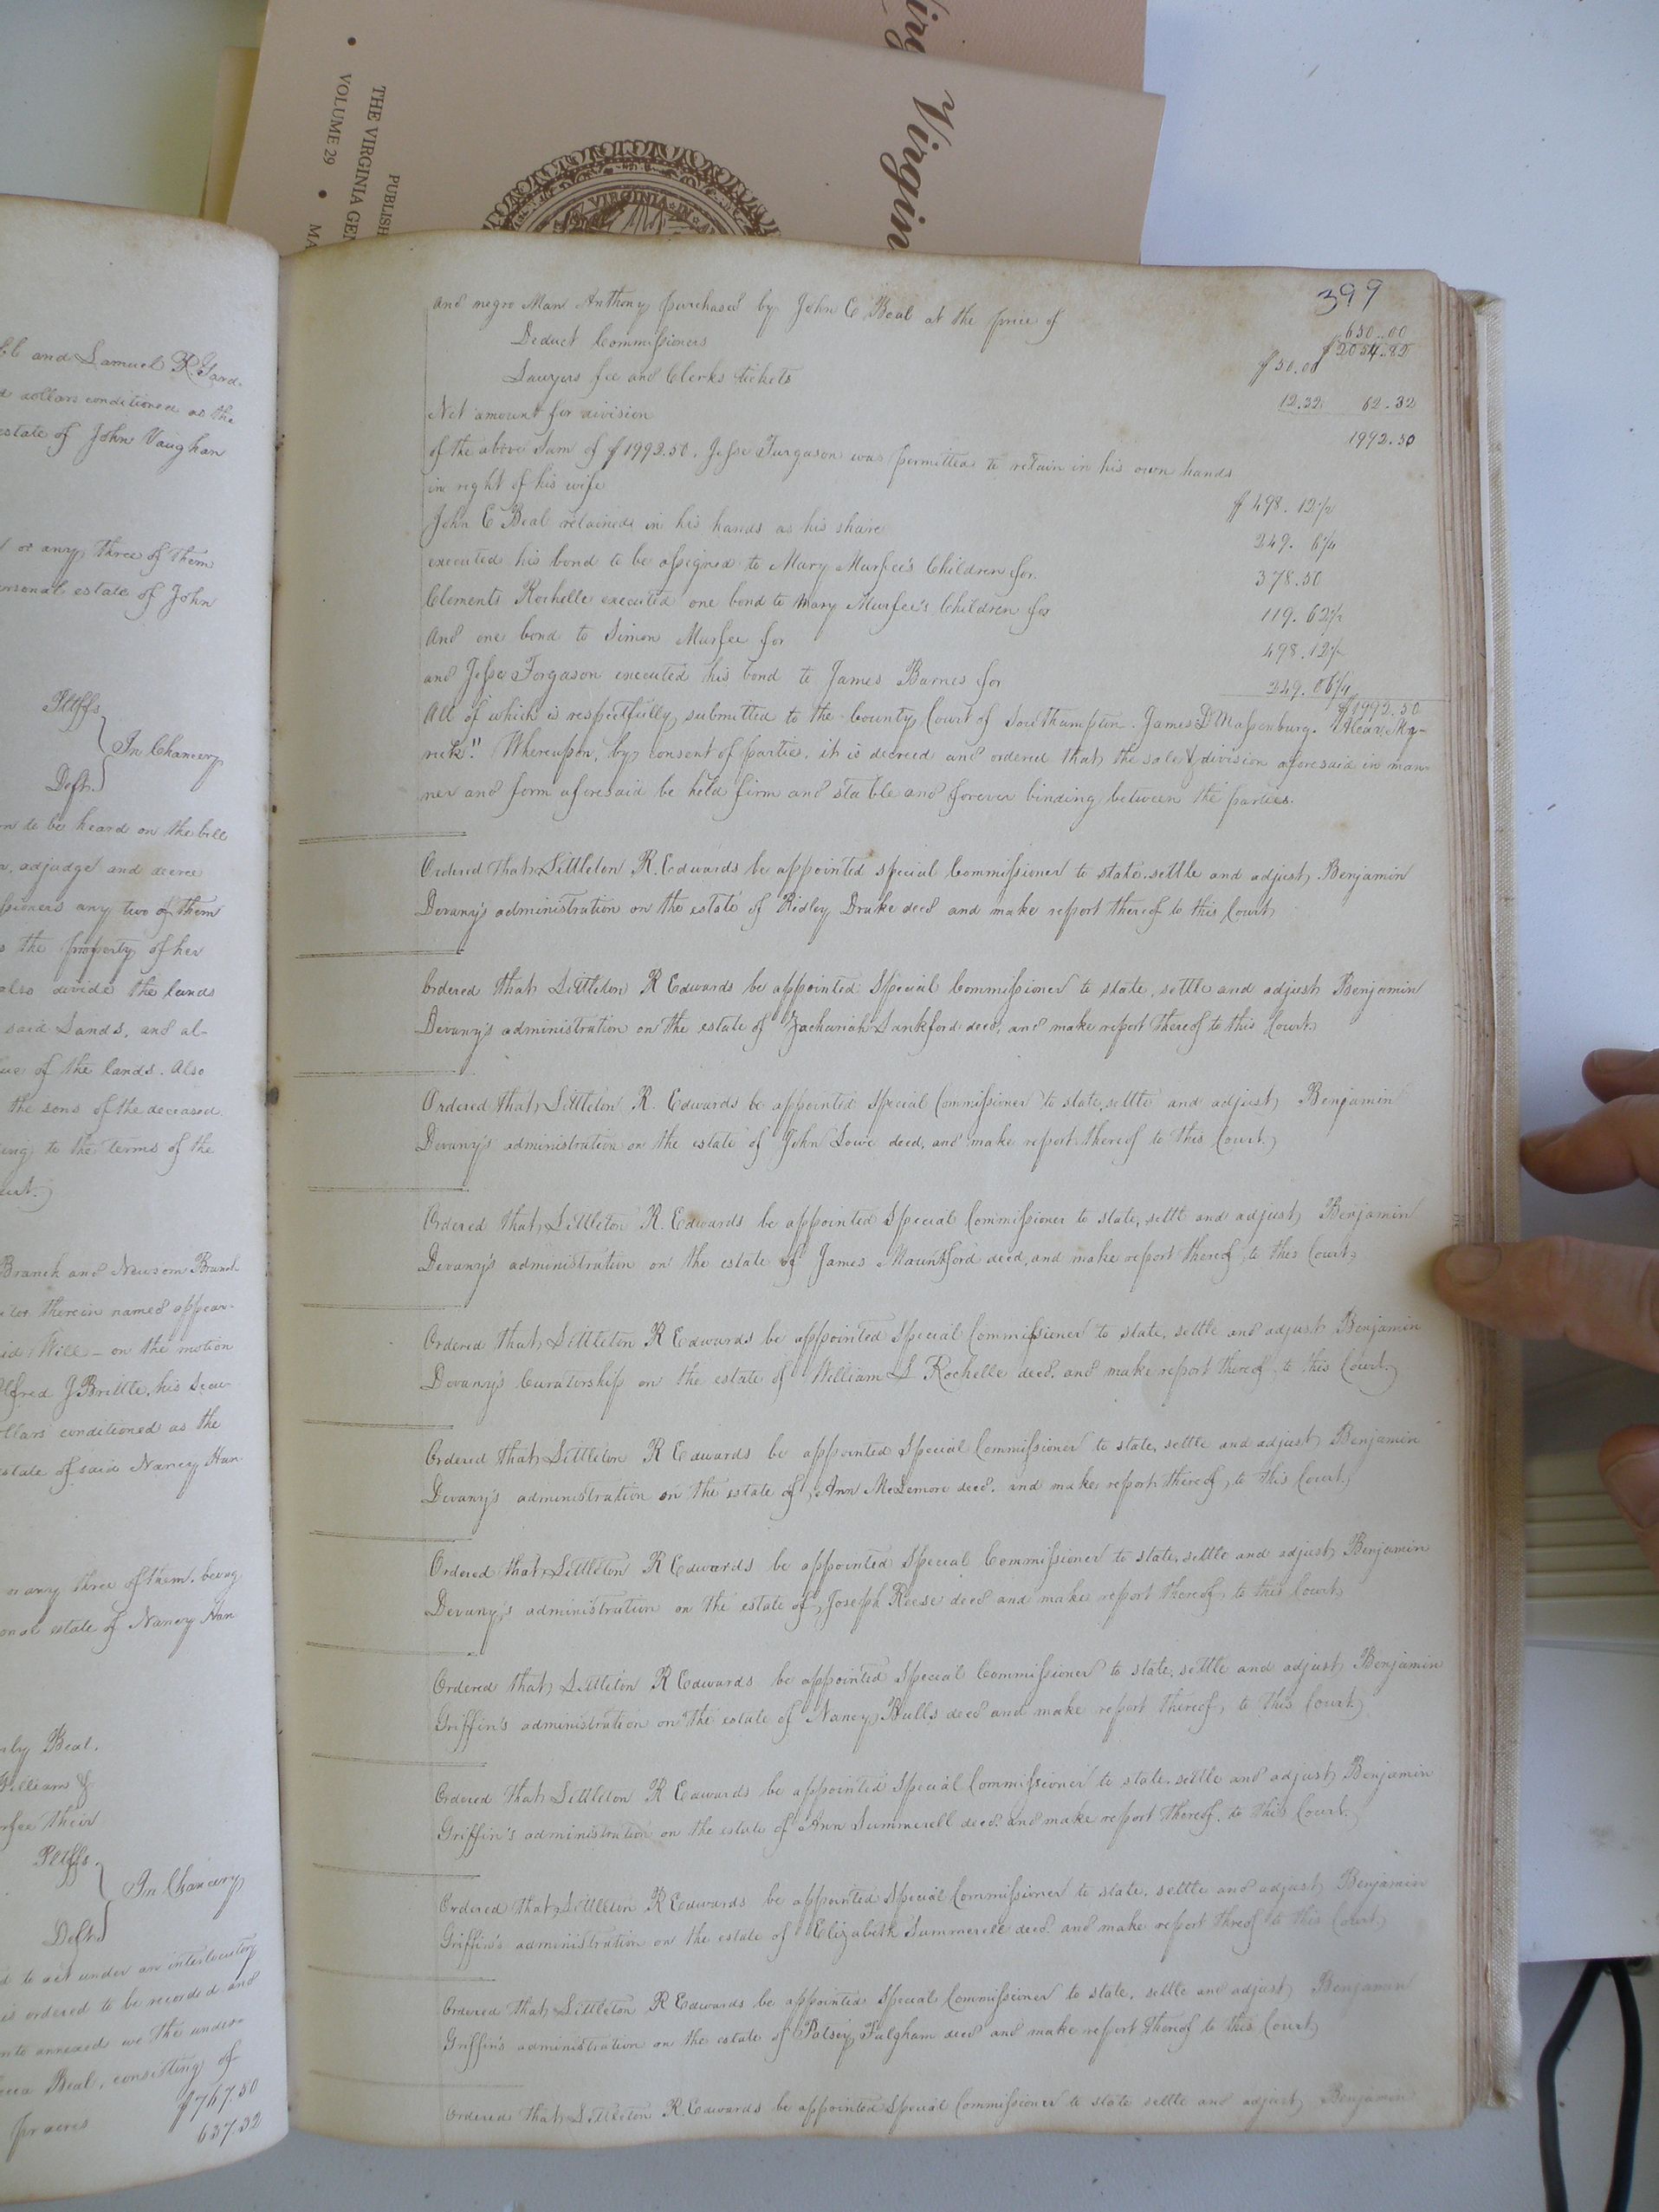 Virgin
PUBLISH
THE VIRGINIA GEN
• VOLUME 29 • MA
VIRGINIA
lt and Samuel R. Gard-
d dollars conditioned as the
estate of John Vaughan
or any three of them
ersonal estate of John
Pltffs
In Chancery
Defts.
n to be heard on the bill
adjudge and decree
ssioners any two of them
s the property of her
also divide the lands
said Lands, and al-
ue of the lands. Also
the sons of the deceased
ing to the terms of the
Branch and Newsom Branch
therein named appear-
id Will - on the motion
lfred J Brittle, his Secu-
llars conditioned as the
estate of said Nancy Han
or any three of them. being
onal estate of Nancy Han
Beal.
William &
rfee their
Pltffs.
In Chancery
Defts
d to act under an interlocutory
is ordered to be recorded and
nto annexed we the under-
cca Beal, consisting of
$767.50
pr acres 637.32
399
and negro Man Anthony purchased by John C Beal at the price of 650..00
$2054..82
Deduct Commissioners $50.00
Lawyers fee and Clerks tickets 12.32 62.32
Net amount for division 1992.50
of the above Sum of $1992.50. Jesse Furgason was permitted to retain in his own hands
in right of his wife $498.12½
John C Beal retained in his hands as his share 249. 6¼
executed his bond to be assigned to Mary Murfee's Children for 378.50
Clements Rochelle executed one bond to Mary Murfee's Children for 119.62½
And one bond to Simon Murfee for 498.12½
and Jesse Forgason executed his bond to James Barnes for 249.06¼
$1992.50
All of which is respectfully submitted to the County Court of Southampton. James D Massenburg.
Whereupon, by consent of parties, it is decreed and ordered that the sale & division aforesaid in man-
ner and form aforesaid be held firm and stable and forever binding between the parties.
Ordered that Littleton R. Edwards be appointed special Commissioner to state, settle and adjust Benjamin
Devany's administration on the estate of Ridley Drake decd and make report thereof to this Court
Ordered that Littleton R Edwards be appointed Special Commissioner to state, settle and adjust Benjamin
Devany's administration on the estate of Zachariah Lankford decd, and make report thereof to this Court.
Ordered that Littleton R. Edwards be appointed Special Commissioner to state, settle and adjust Benjamin
Devany's administration on the estate of John Lowe decd, and make report thereof to this Court.
Ordered that Littleton R. Edwards be appointed Special Commissioner to state, settle and adjust Benjamin
Devany's administration on the estate of James decd, and make report thereof to this Court.
Ordered that Littleton R Edwards be appointed Special Commissioner to state, settle and adjust Benjamin
Devany's Curatorship on the estate of William L Rochelle decd. and make report thereof to this Court
Ordered that Littleton R Edwards be appointed Special Commissioner to state, settle and adjust Benjamin
Devany's administration on the estate of Ann McLemore decd. and make report thereof, to this Court.
Ordered that Littleton R Edwards be appointed Special Commissioner to state, settle and adjust Benjamin
Devany's administration on the estate of Joseph Reese decd and make report thereof, to this Court
Ordered that Littleton R Edwards be appointed Special Commissioner to state, settle and adjust Benjamin
Griffin's administration on the estate of Nancy Hulls decd and make report thereof, to this Court
Ordered that Littleton R Edwards be appointed Special Commissioner to state, settle and adjust Benjamin
Griffin's administration on the estate of Ann Summerell decd. and make report thereof, to this Court.
Ordered that Littleton R Edwards be appointed Special Commissioner to state, settle and adjust Benjamin
Griffin's administration on the estate of Elizabeth Summerell decd. and make report threof to this Court
Ordered that Littleton R Edwards be appointed Special Commissioner to state, settle and adjust Benjamin
Griffin's administration on the estate of Patsey Fulgham decd and make report thereof to this Court
Ordered that Littleton R Edwards be appointed Special Commissioner to state settle and adjust Benjamin